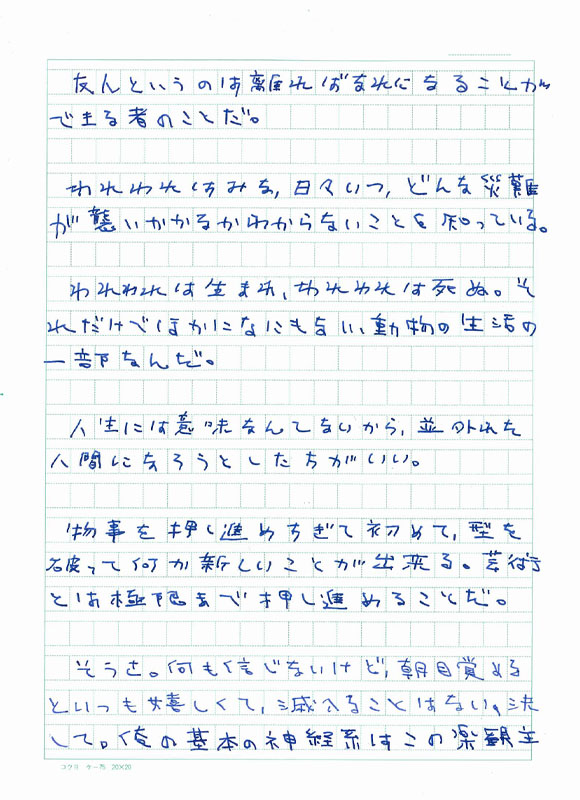 友人というのは離ればなれになることが
できる者のことだ。
われわれはみな,日々いつ,どんな災難
が襲いかかるかわからないことを知っている。
われわれは生まれ、われわれは死ぬ。そ
れだけでほかになにもない、動物の生活の
一部なんだ。
人生には意味なんてないから,並外れた
人間になろうとした方がいい。
物事を押し進めすぎて初めて,型を
破って何か新しいことが出来る。芸術
とは極限まで押し進めることだ。
そうさ。何も信じないけど,朝目覚める
といつも嬉しくて,滅入ることはない、決
して。俺の基本の神経系はこの楽観主
コクヨ ケー75 20×20